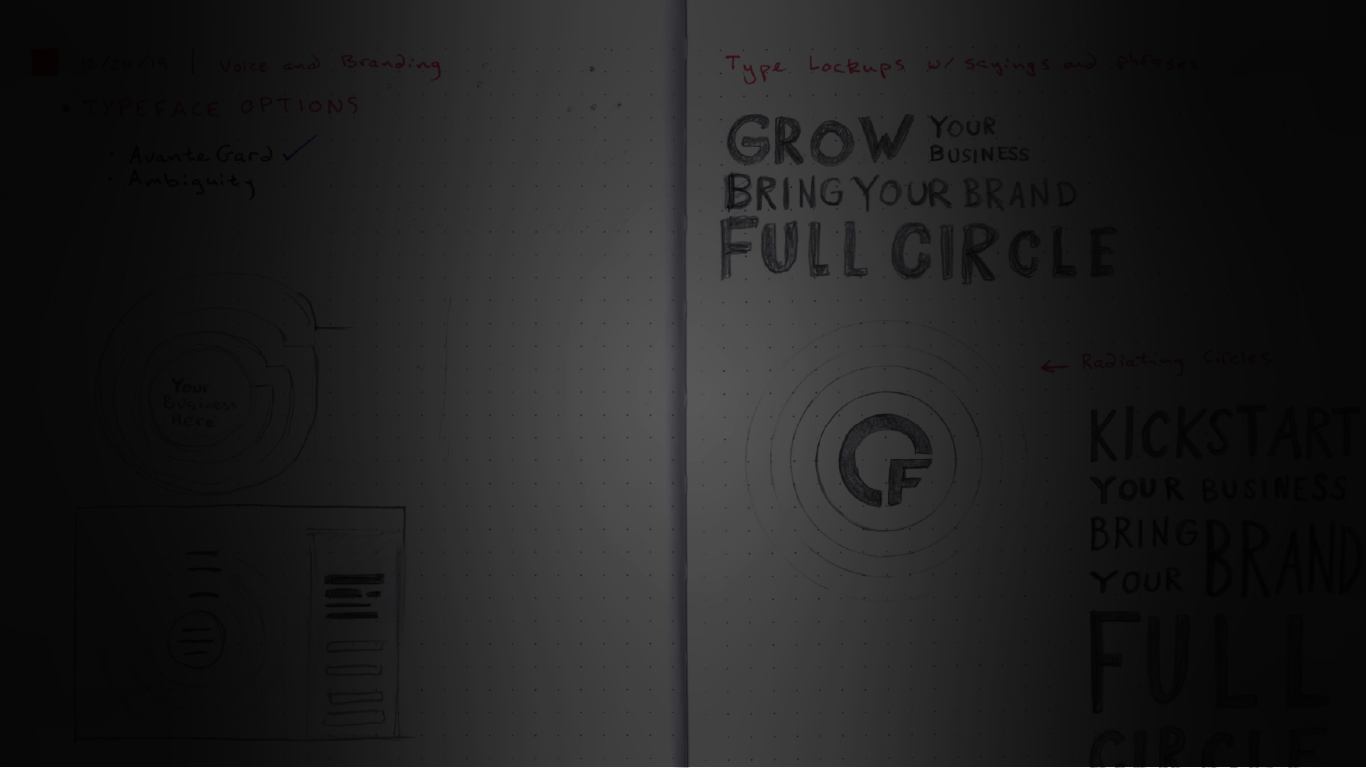 12/20/19 | Voice and Branding
• TYPEFACE OPTIONS
· Avante Gard ✓
· Ambiguity
Your
Business
Here
Type Lockups w/ sayings and phrases
GROW YOUR
BUSINESS
BRING YOUR BRAND
FULL CIRCLE
← Radiating Circles
CF
KICKSTART
YOUR BUSINESS
BRING BRAND
YOUR
FULL
CIRCLE